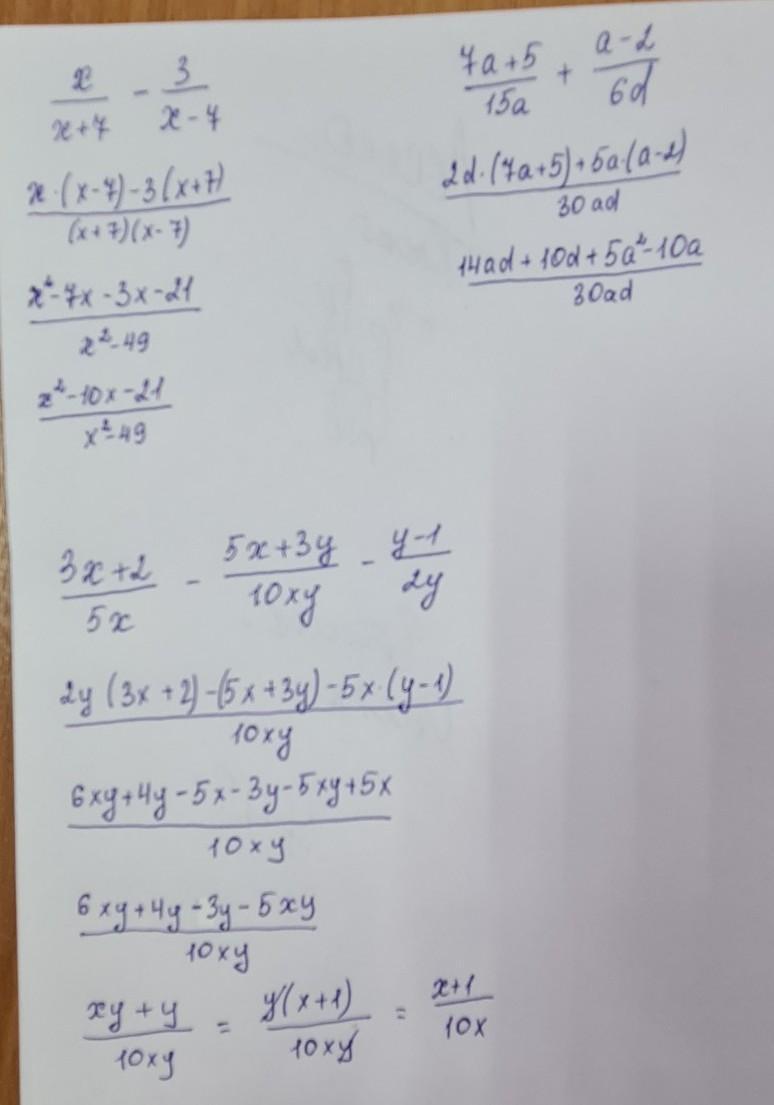 x/(x+7) - 3/(x-7)
(x·(x-7)-3(x+7))/((x+7)(x-7))
(x²-7x-3x-21)/(x²-49)
(x²-10x-21)/(x²-49)
(7a+5)/(15a) + (a-2)/(6d)
(2d·(7a+5)+5a·(a-2))/(30ad)
(14ad+10d+5a²-10a)/(30ad)
(3x+2)/(5x) - (5x+3y)/(10xy) - (y-1)/(2y)
(2y(3x+2)-(5x+3y)-5x·(y-1))/(10xy)
(6xy+4y-5x-3y-5xy+5x)/(10xy)
(6xy+4y-3y-5xy)/(10xy)
(xy+y)/(10xy) = (y(x+1))/(10xy) = (x+1)/(10x)